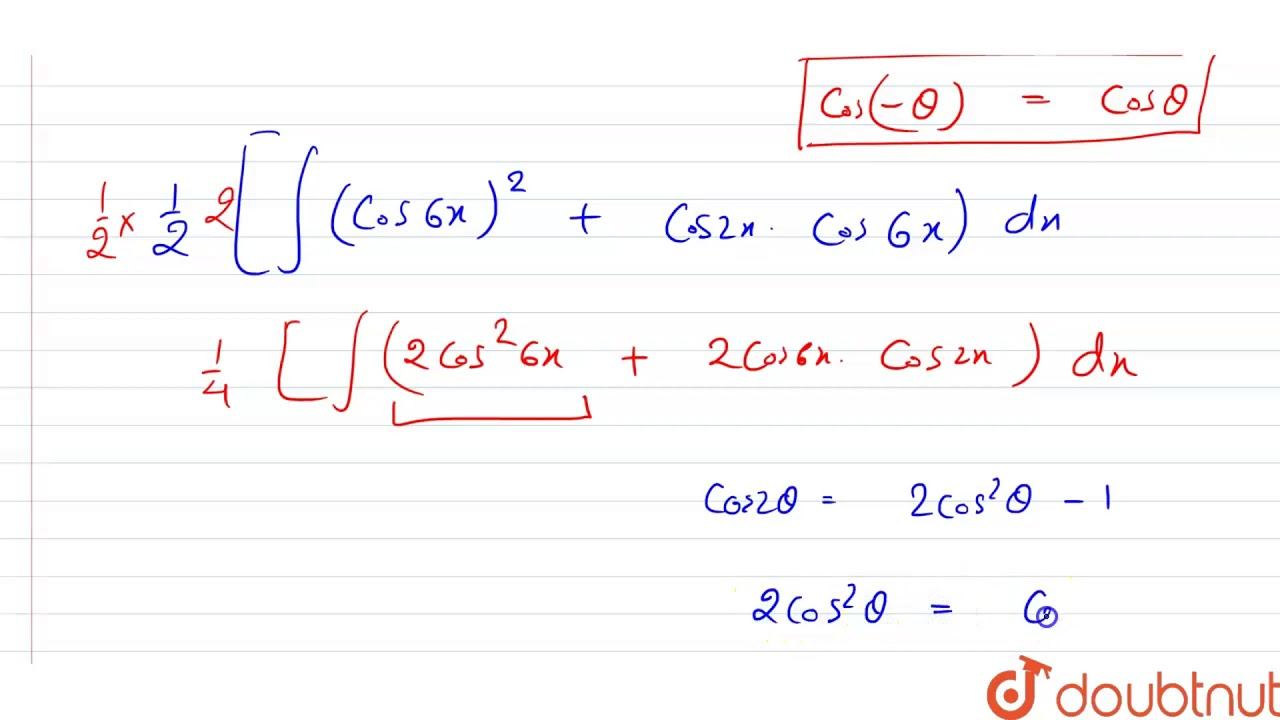 Cos(-θ) = Cosθ
1/2 × 1/2 2[∫(Cos6x)² + Cos2x. Cos6x) dx
1/4 [∫(2Cos²6x + 2Cos6x. Cos2x) dx
Cos2θ = 2Cos²θ - 1
2Cos²θ = Co
doubtnut